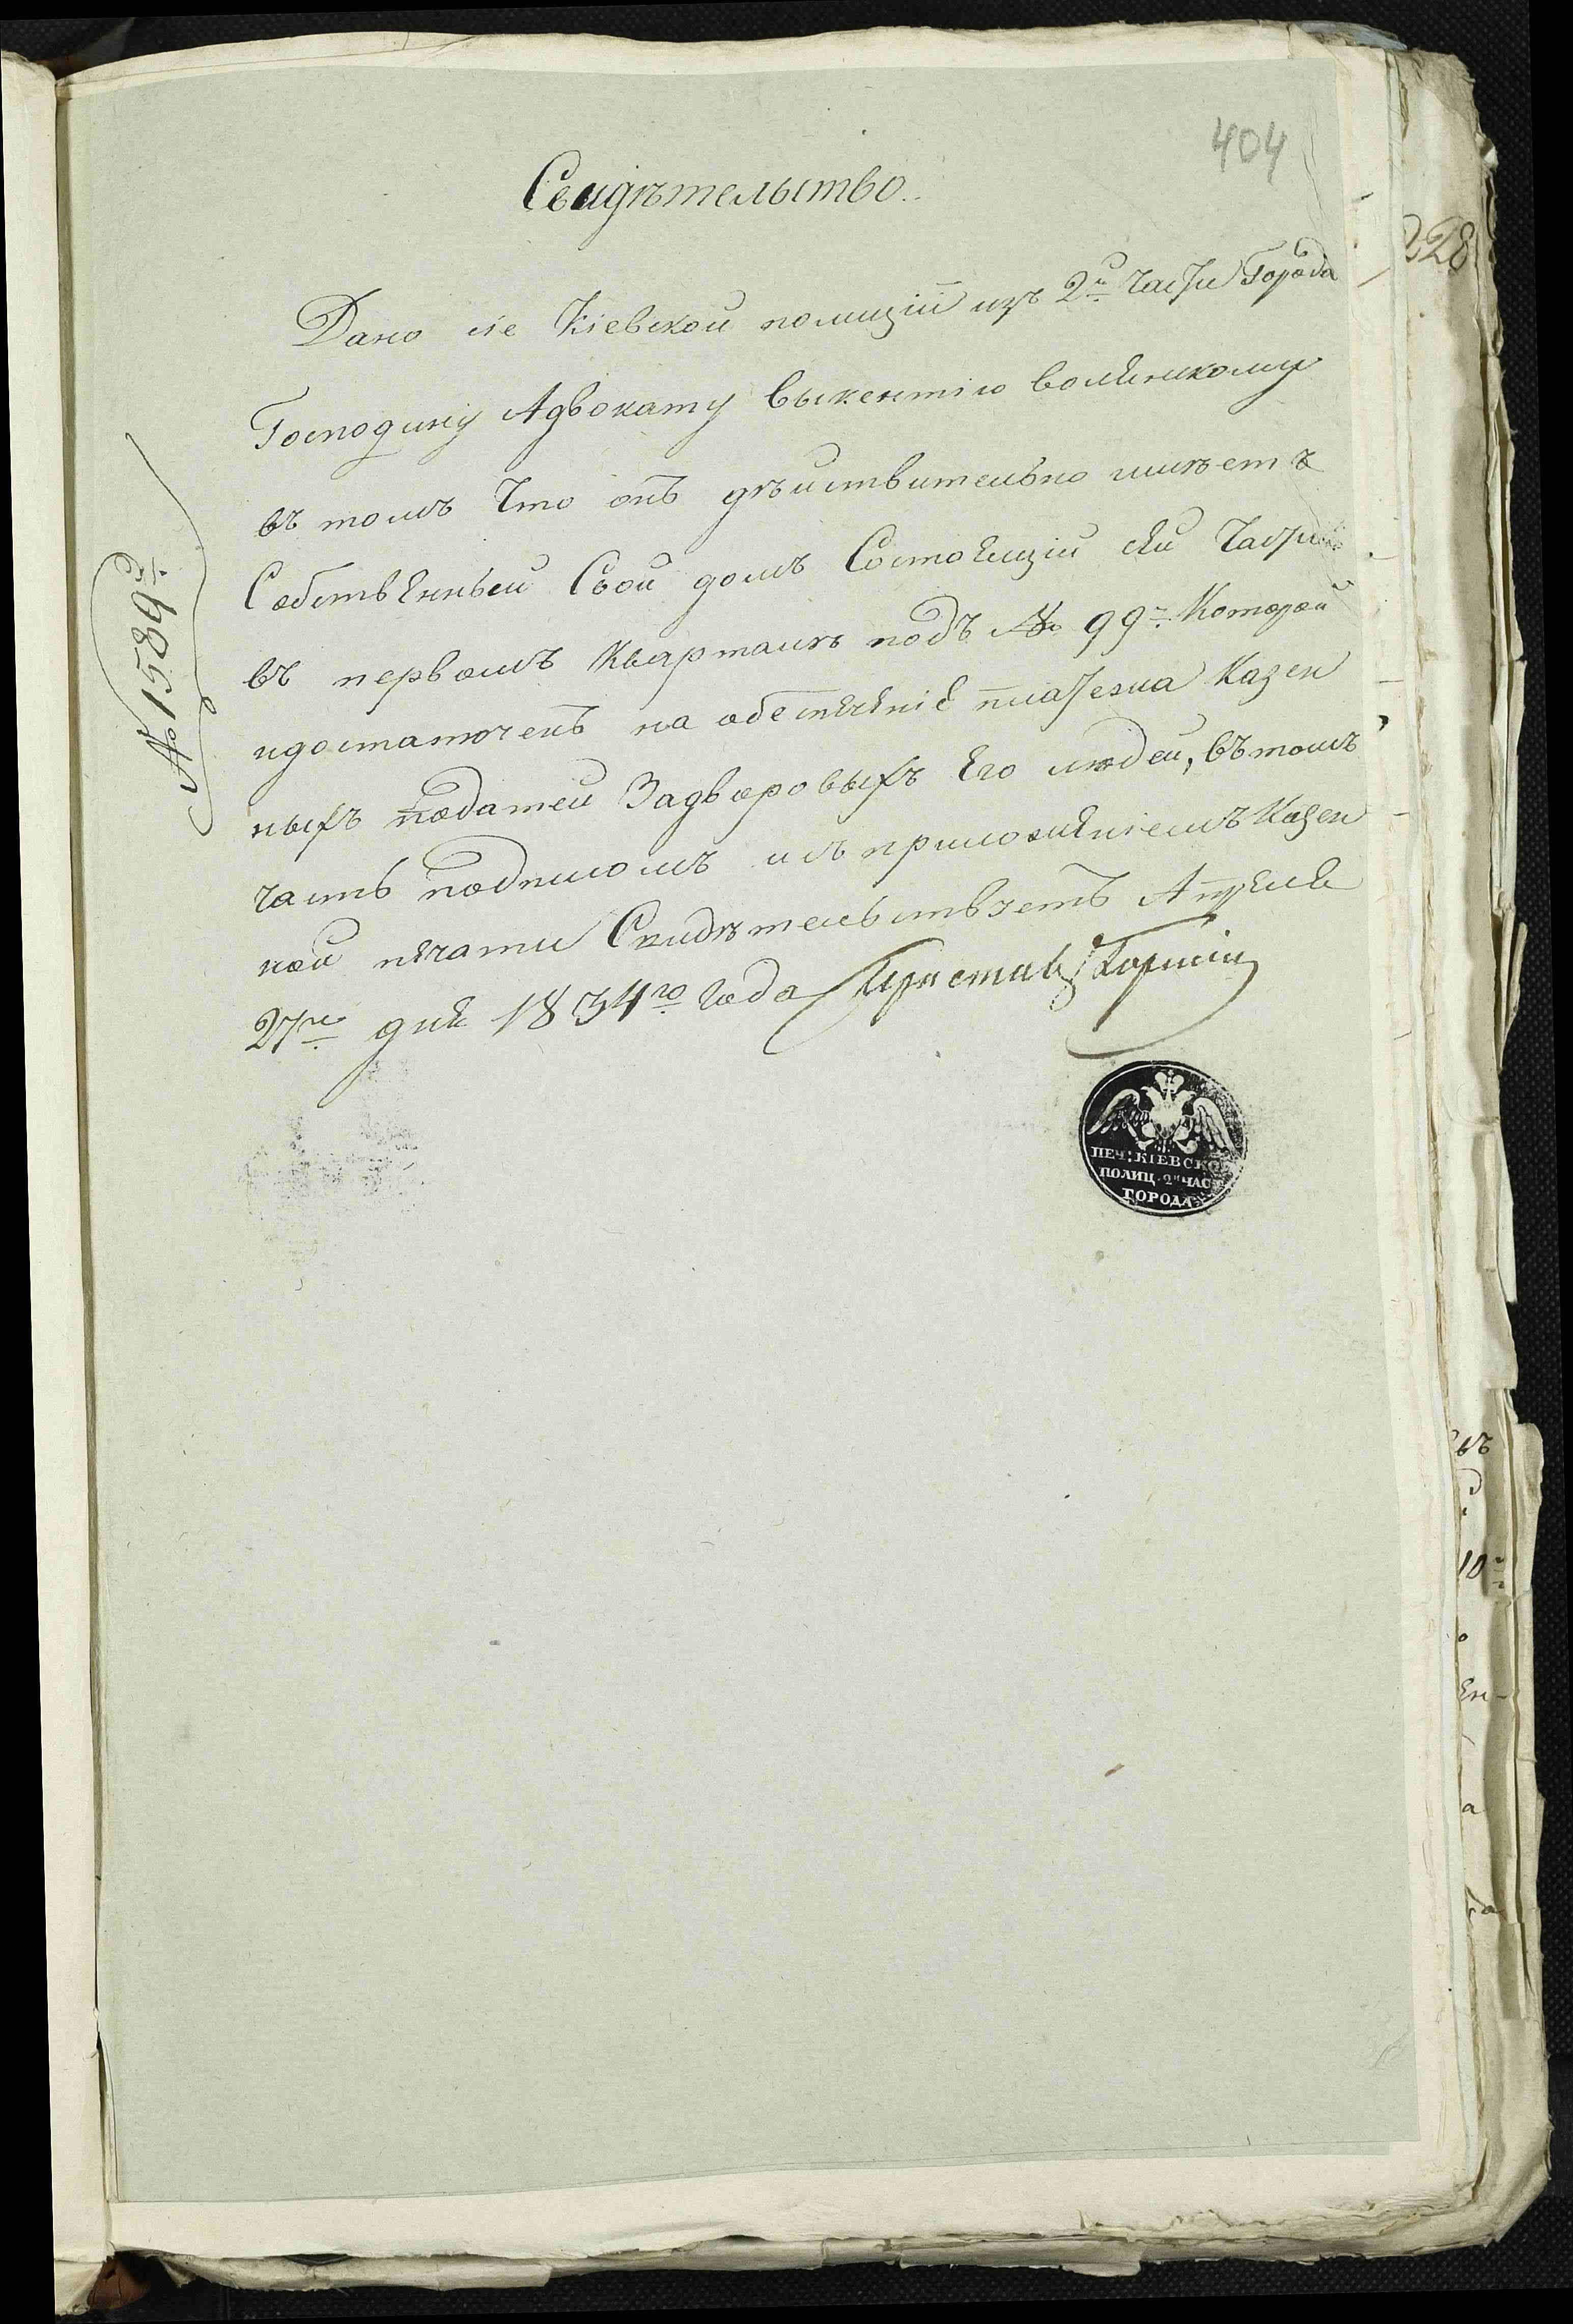 404
Свидѣтельство.
Дано сіе Кіевской полицій изъ 2й Части Города
Господину Адвокату Выкентію
въ томъ Что онъ дѣйствительно имѣетъ
Собственный Свой домъ Состоящій сей Части
въ первомъ Кварталѣ подъ № 99. Которой
идостаточенъ на обеспеченіе платежа Казен
ныхъ податей Задворовыхъ Его людей, въ томъ
часть подписомъ исъ приложеніемъ Казен
ной печати Свидѣтельствуетъ Апреля
27го дня 1834го года Пристав
№ 1589й
ПЕЧ: КІЕВСКОЙ
ПОЛИЦ. 2й ЧАС
ГОРОДА
228
въ
10
ен-
а